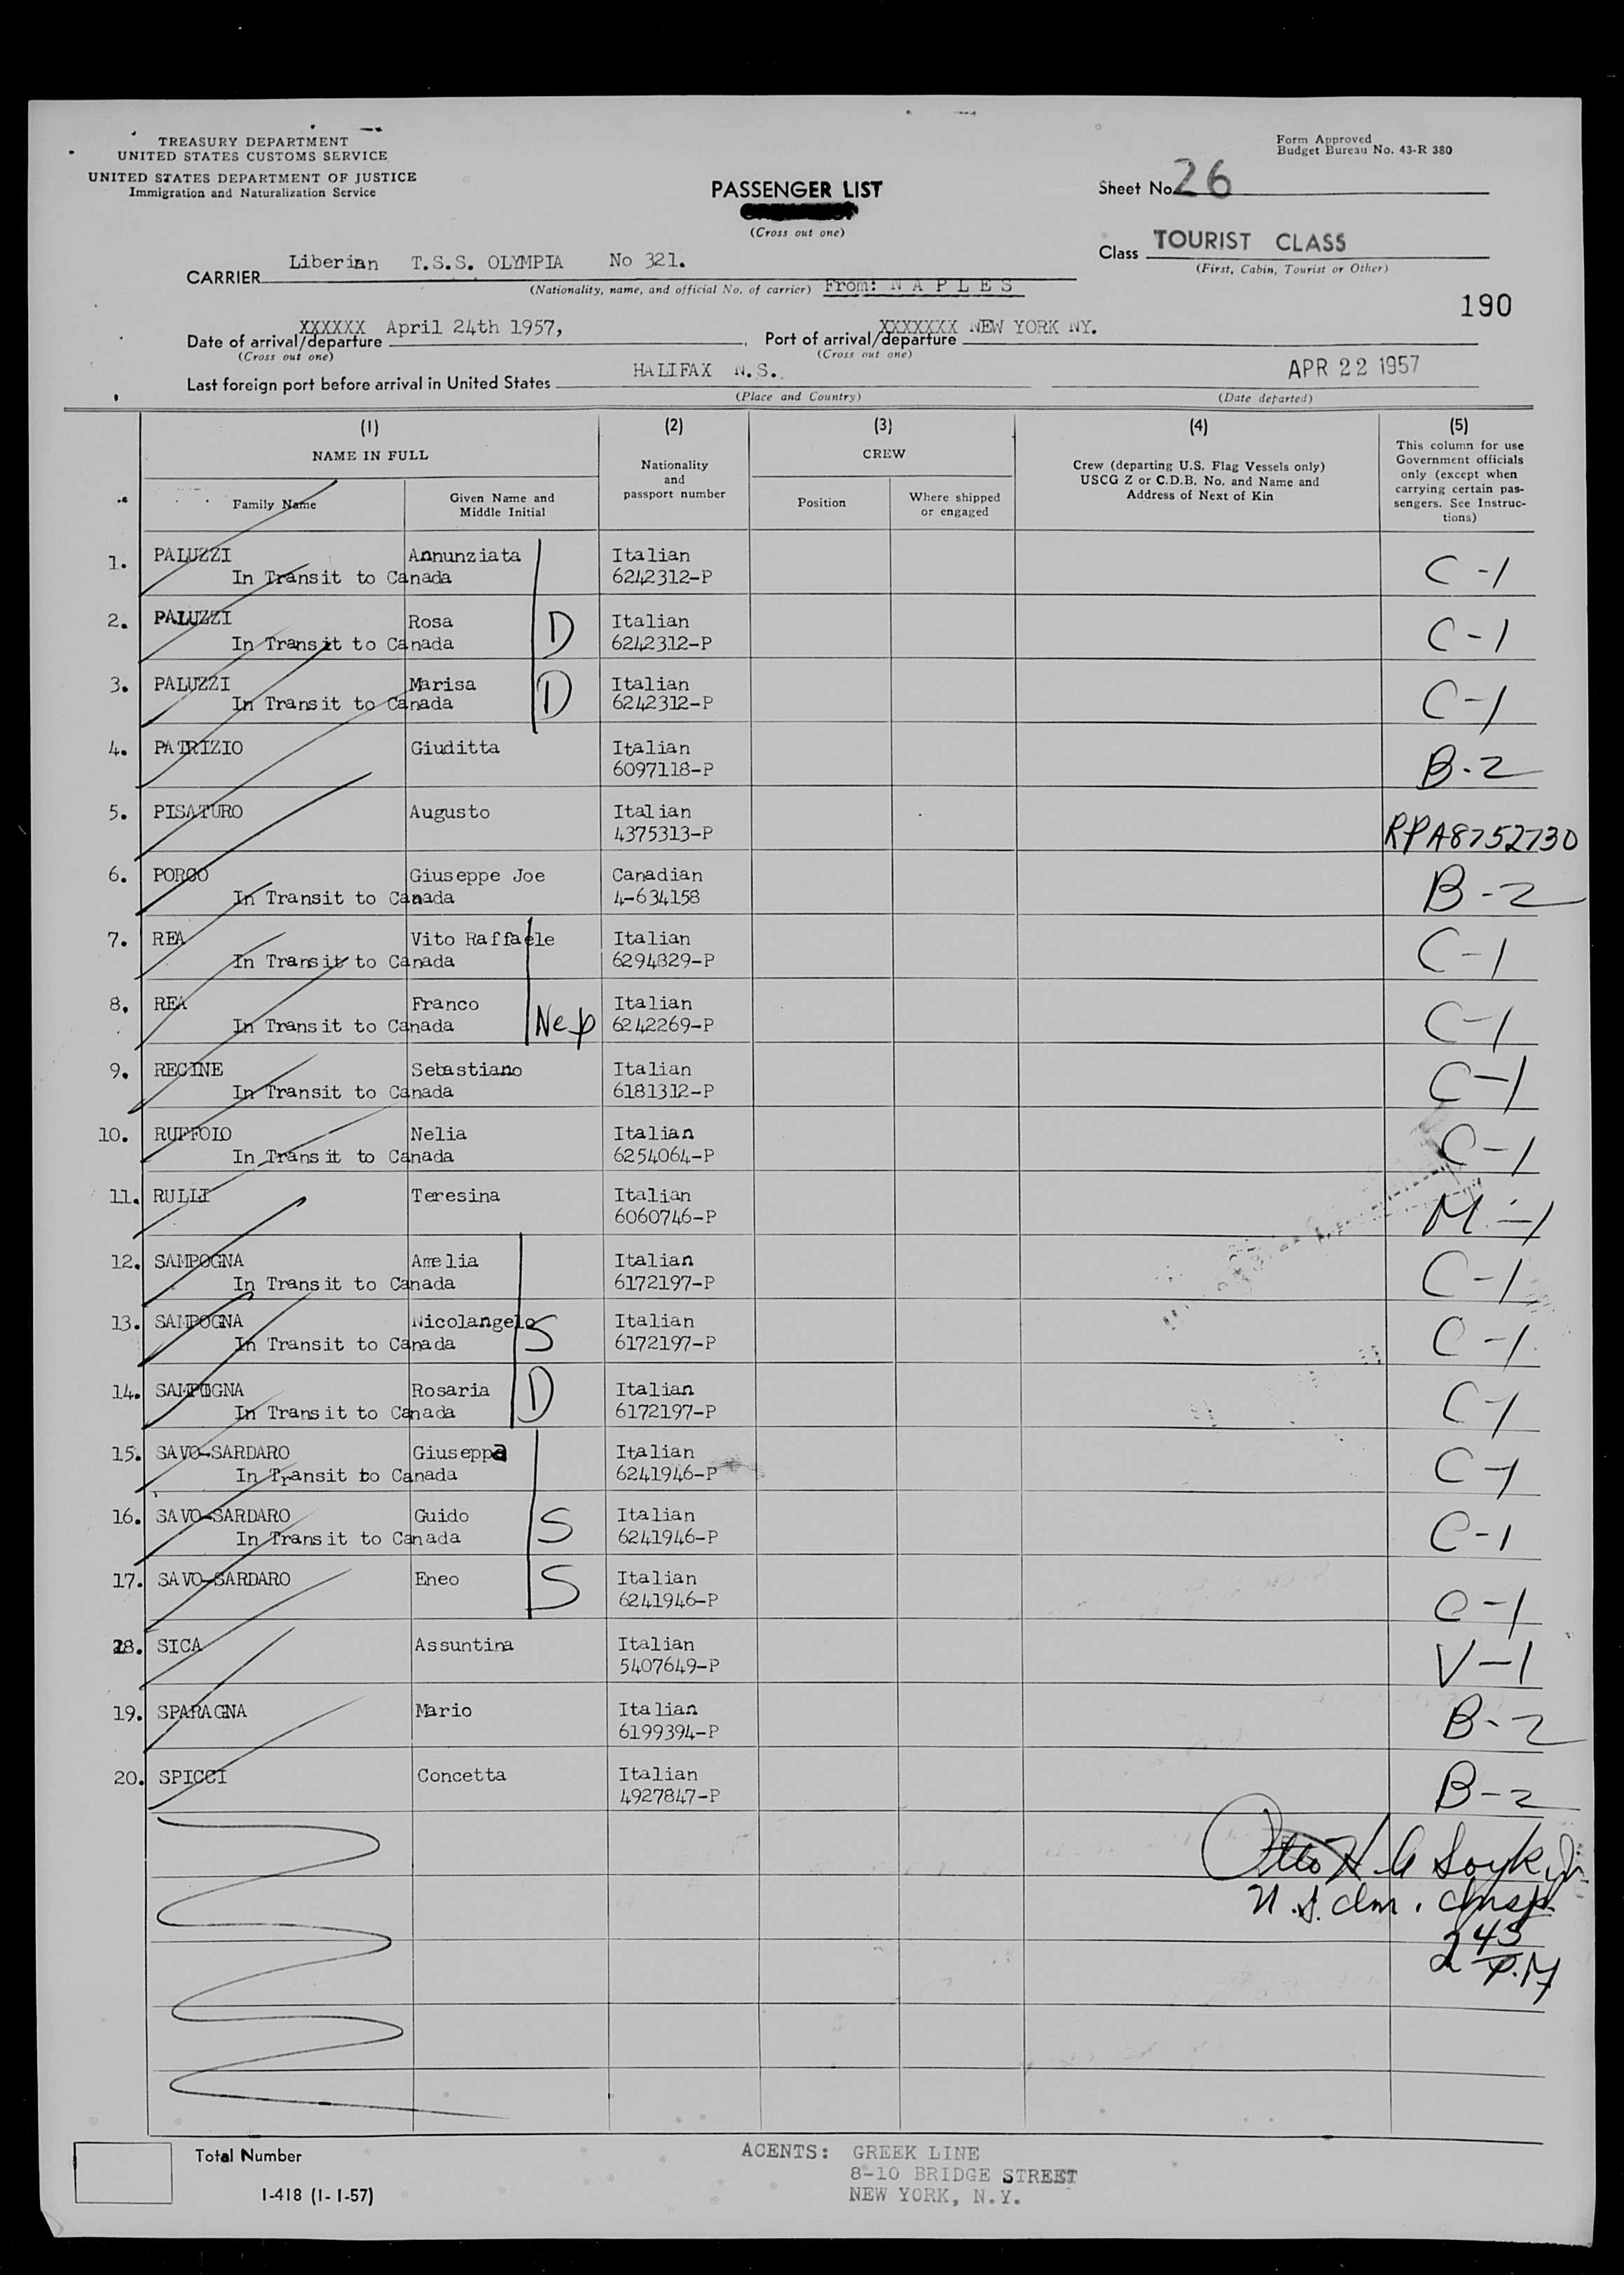 TREASURY DEPARTMENT
UNITED STATES CUSTOMS SERVICE
UNITED STATES DEPARTMENT OF JUSTICE
Immigration and Naturalization Service
Form Approved
Budget Bureau No. 43-R 380
PASSENGER LIST
(Cross out one)
Sheet No. 26
Class TOURIST CLASS
(First, Cabin, Tourist or Other)
CARRIER Liberian T.S.S. OLYMPIA No 321.
(Nationality, name, and official No. of carrier) From: NAPLES
190
XXXXXX April 24th 1957, XXXXXXX NEW YORK NY.
Date of arrival/departure Port of arrival/departure
(Cross out one) (Cross out one)
Last foreign port before arrival in United States HALIFAX N.S. APR 22 1957
(Place and Country) (Date departed)
(1) (2) (3) (4) (5)
NAME IN FULL
Family Name
Given Name and
Middle Initial
Nationality
and
passport number
CREW
Position
Where shipped
or engaged
Crew (departing U.S. Flag Vessels only)
USCG Z or C.D.B. No. and Name and
Address of Next of Kin
This column for use
Government officials
only (except when
carrying certain pas-
sengers. See Instruc-
tions)
1. PALUZZI Annunziata Italian C-1
In Transit to Canada 6242312-P
2. PALUZZI Rosa D Italian C-1
In Transit to Canada 6242312-P
3. PALUZZI Marisa D Italian C-1
In Transit to Canada 6242312-P
4. PATRIZIO Giuditta Italian B-2
6097118-P
5. PISATURO Augusto Italian RPA8752730
4375313-P
6. PORCO Giuseppe Joe Canadian B-2
In Transit to Canada 4-634158
7. REA Vito Raffaele Italian C-1
In Transit to Canada 6294829-P
8. REA Franco Nep Italian C-1
In Transit to Canada 6242269-P
9. RECINE Sebastiano Italian C-1
In Transit to Canada 6181312-P
10. RUFFOLO Nelia Italian C-1
In Transit to Canada 6254064-P
11. RULLI Teresina Italian M-1
6060746-P
12. SAMPOGNA Amelia Italian C-1
In Transit to Canada 6172197-P
13. SAMPOGNA Nicolangelo S Italian C-1
In Transit to Canada 6172197-P
14. SAMPOGNA Rosaria D Italian C-1
In Transit to Canada 6172197-P
15. SAVO-SARDARO Giuseppa Italian C-1
In Transit to Canada 6241946-P
16. SAVO-SARDARO Guido S Italian C-1
In Transit to Canada 6241946-P
17. SAVO-SARDARO Eneo S Italian C-1
6241946-P
18. SICA Assuntina Italian V-1
5407649-P
19. SPARAGNA Mario Italian B-2
6199394-P
20. SPICCI Concetta Italian B-2
4927847-P
Otto H Soyk Jr.
Insp.
2 45
P.M
Total Number
I-418 (1-1-57)
AGENTS: GREEK LINE
8-10 BRIDGE STREET
NEW YORK, N.Y.